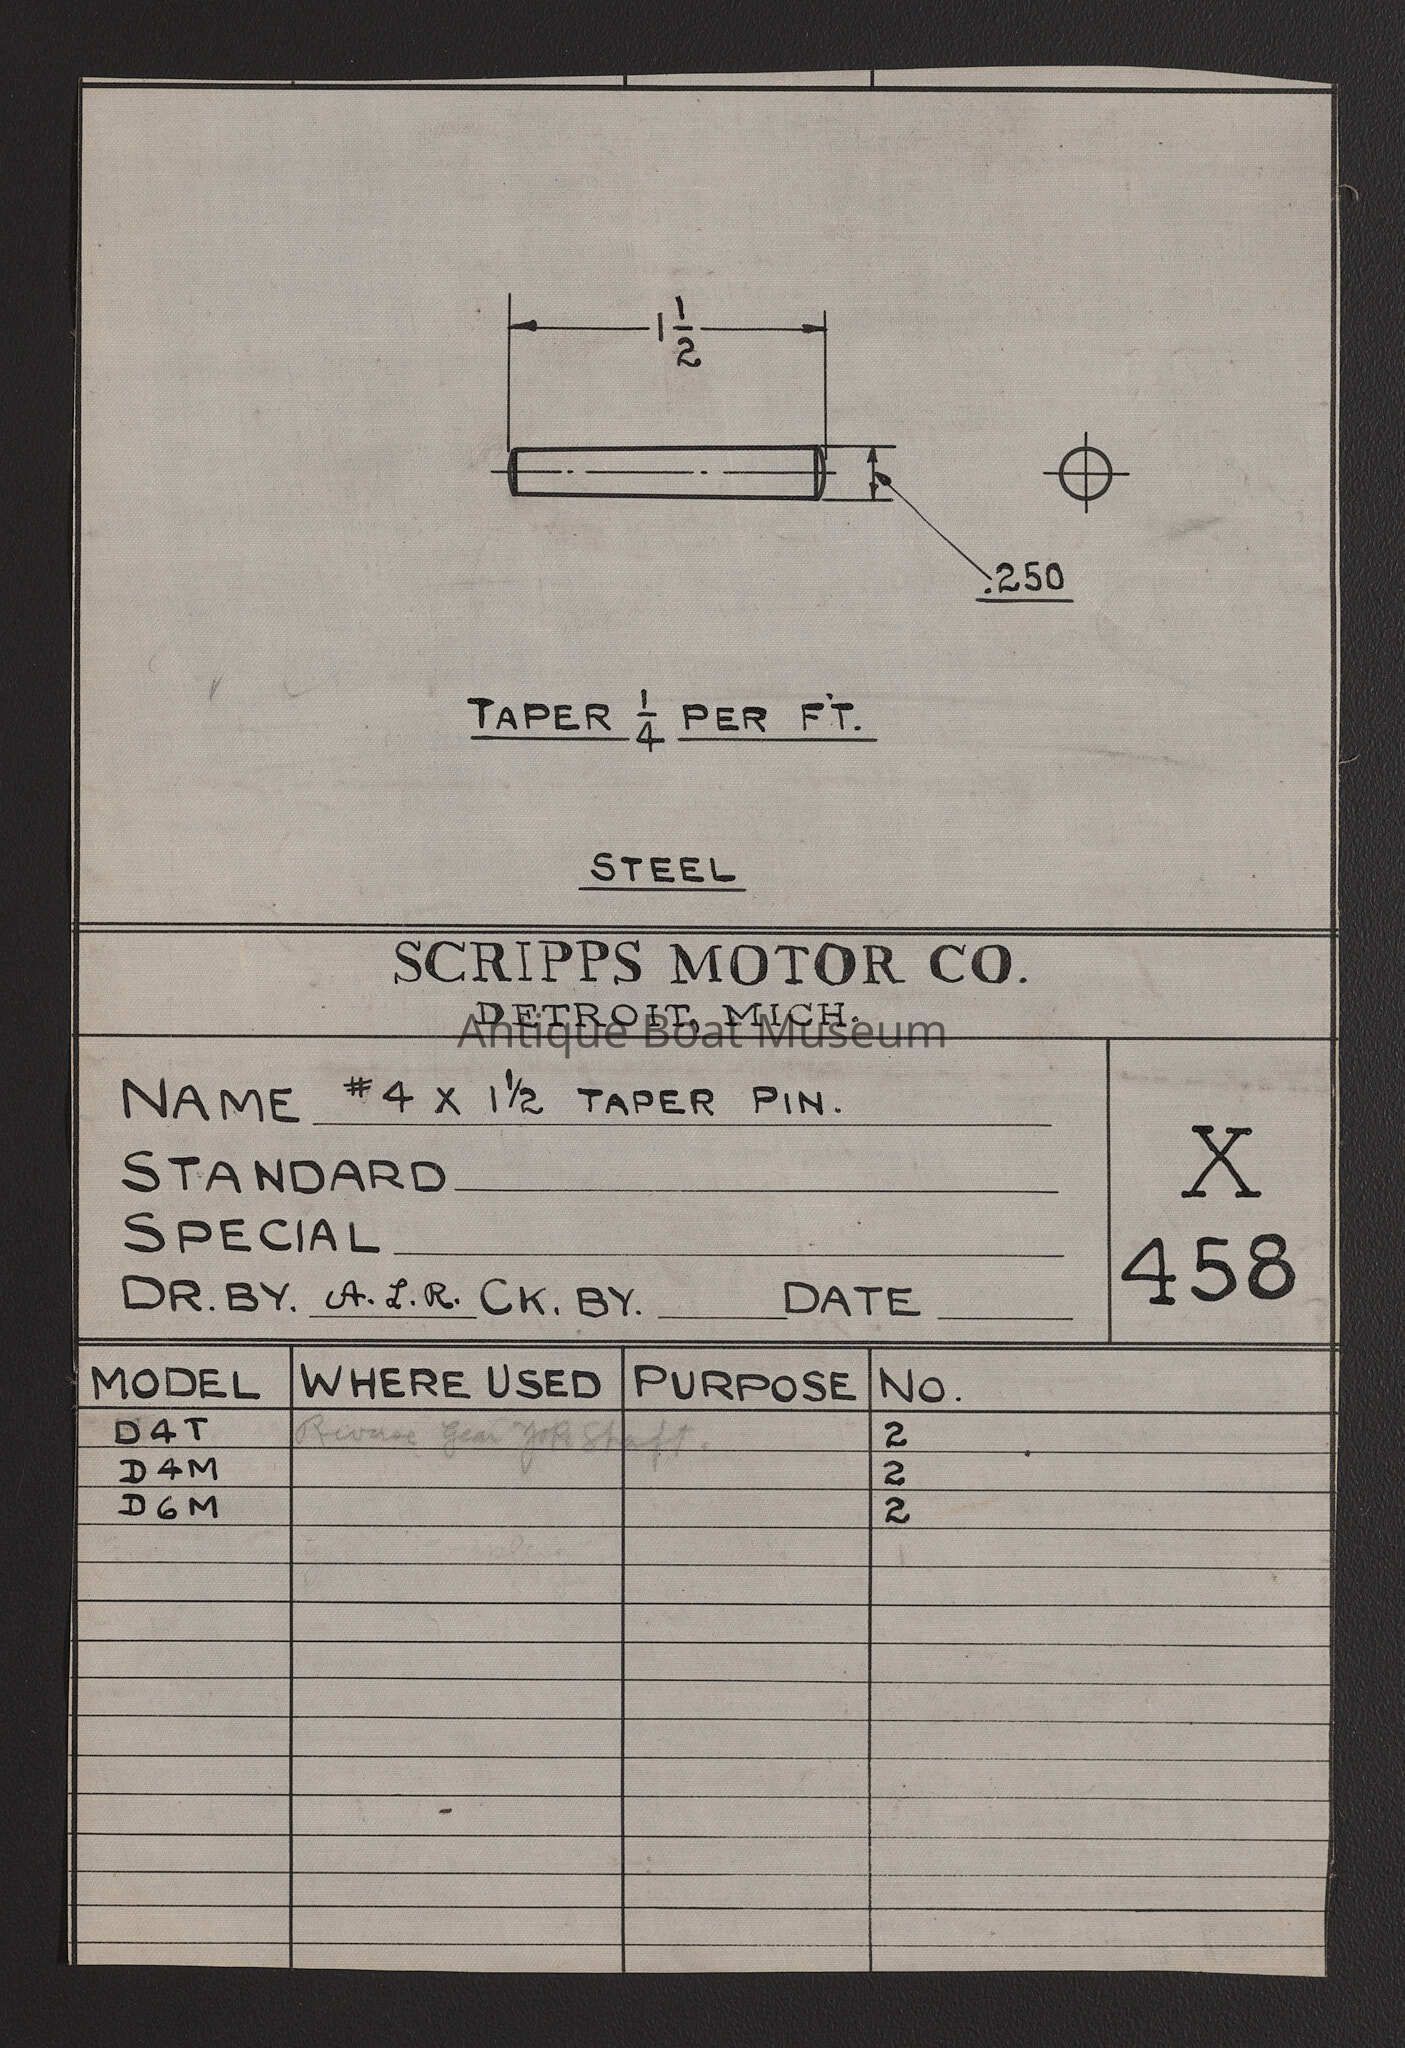 1 1/2
.250
TAPER 1/4 PER FT.
STEEL
SCRIPPS MOTOR CO.
DETROIT, MICH.
Antique Boat Museum
NAME #4 X 1 1/2 TAPER PIN.
STANDARD
SPECIAL
DR. BY. A. L. R. CK. BY. DATE
X
458
MODEL WHERE USED PURPOSE NO.
D4T Reverse Gear Shaft. 2
D4M 2
D6M 2